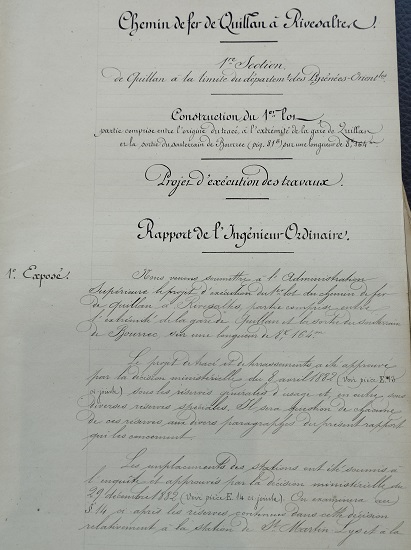 Chemin de fer de Quillan à Rivesaltes.
1re Section
de Quillan à la limite du départemt des Pyrénées-Orientles
Construction du 1er lot
partie comprise entre l'origine du tracé, à l'extrémité de la gare de Quillan
et la sortie du souterrain de Bourrec sur une longueur de
Projet d'exécution des travaux.
Rapport de l'Ingénieur Ordinaire.
1° Exposé.
Nous venons soumettre à l'Administration
Supérieure le projet d'exécution du 1er lot du chemin de fer
de Quillan à Rivesaltes partie comprise entre
l'extrémité de la gare de Quillan et la sortie du souterrain
de Bourrec, sur une longueur de
Le projet de tracé et de terrassements a été approuvé
par la décision ministérielle du 8 avril 1882 (Voir pièce E.
ci-jointe) sous les réserves générales d'usage et, en outre sous
diverses réserves spéciales. Il sera fait mention de chacune
de ces réserves, aux divers paragraphes du présent rapport
qui les concernent.
Les emplacements des stations ont été soumis à
l'enquête et approuvés par la décision ministérielle du
29 décembre 1882 (Voir pièce E. 14 ci-jointe). On examinera au
§ 14 ci-après les réserves contenues dans cette décision
relativement à la station de St Martin Lys et à la